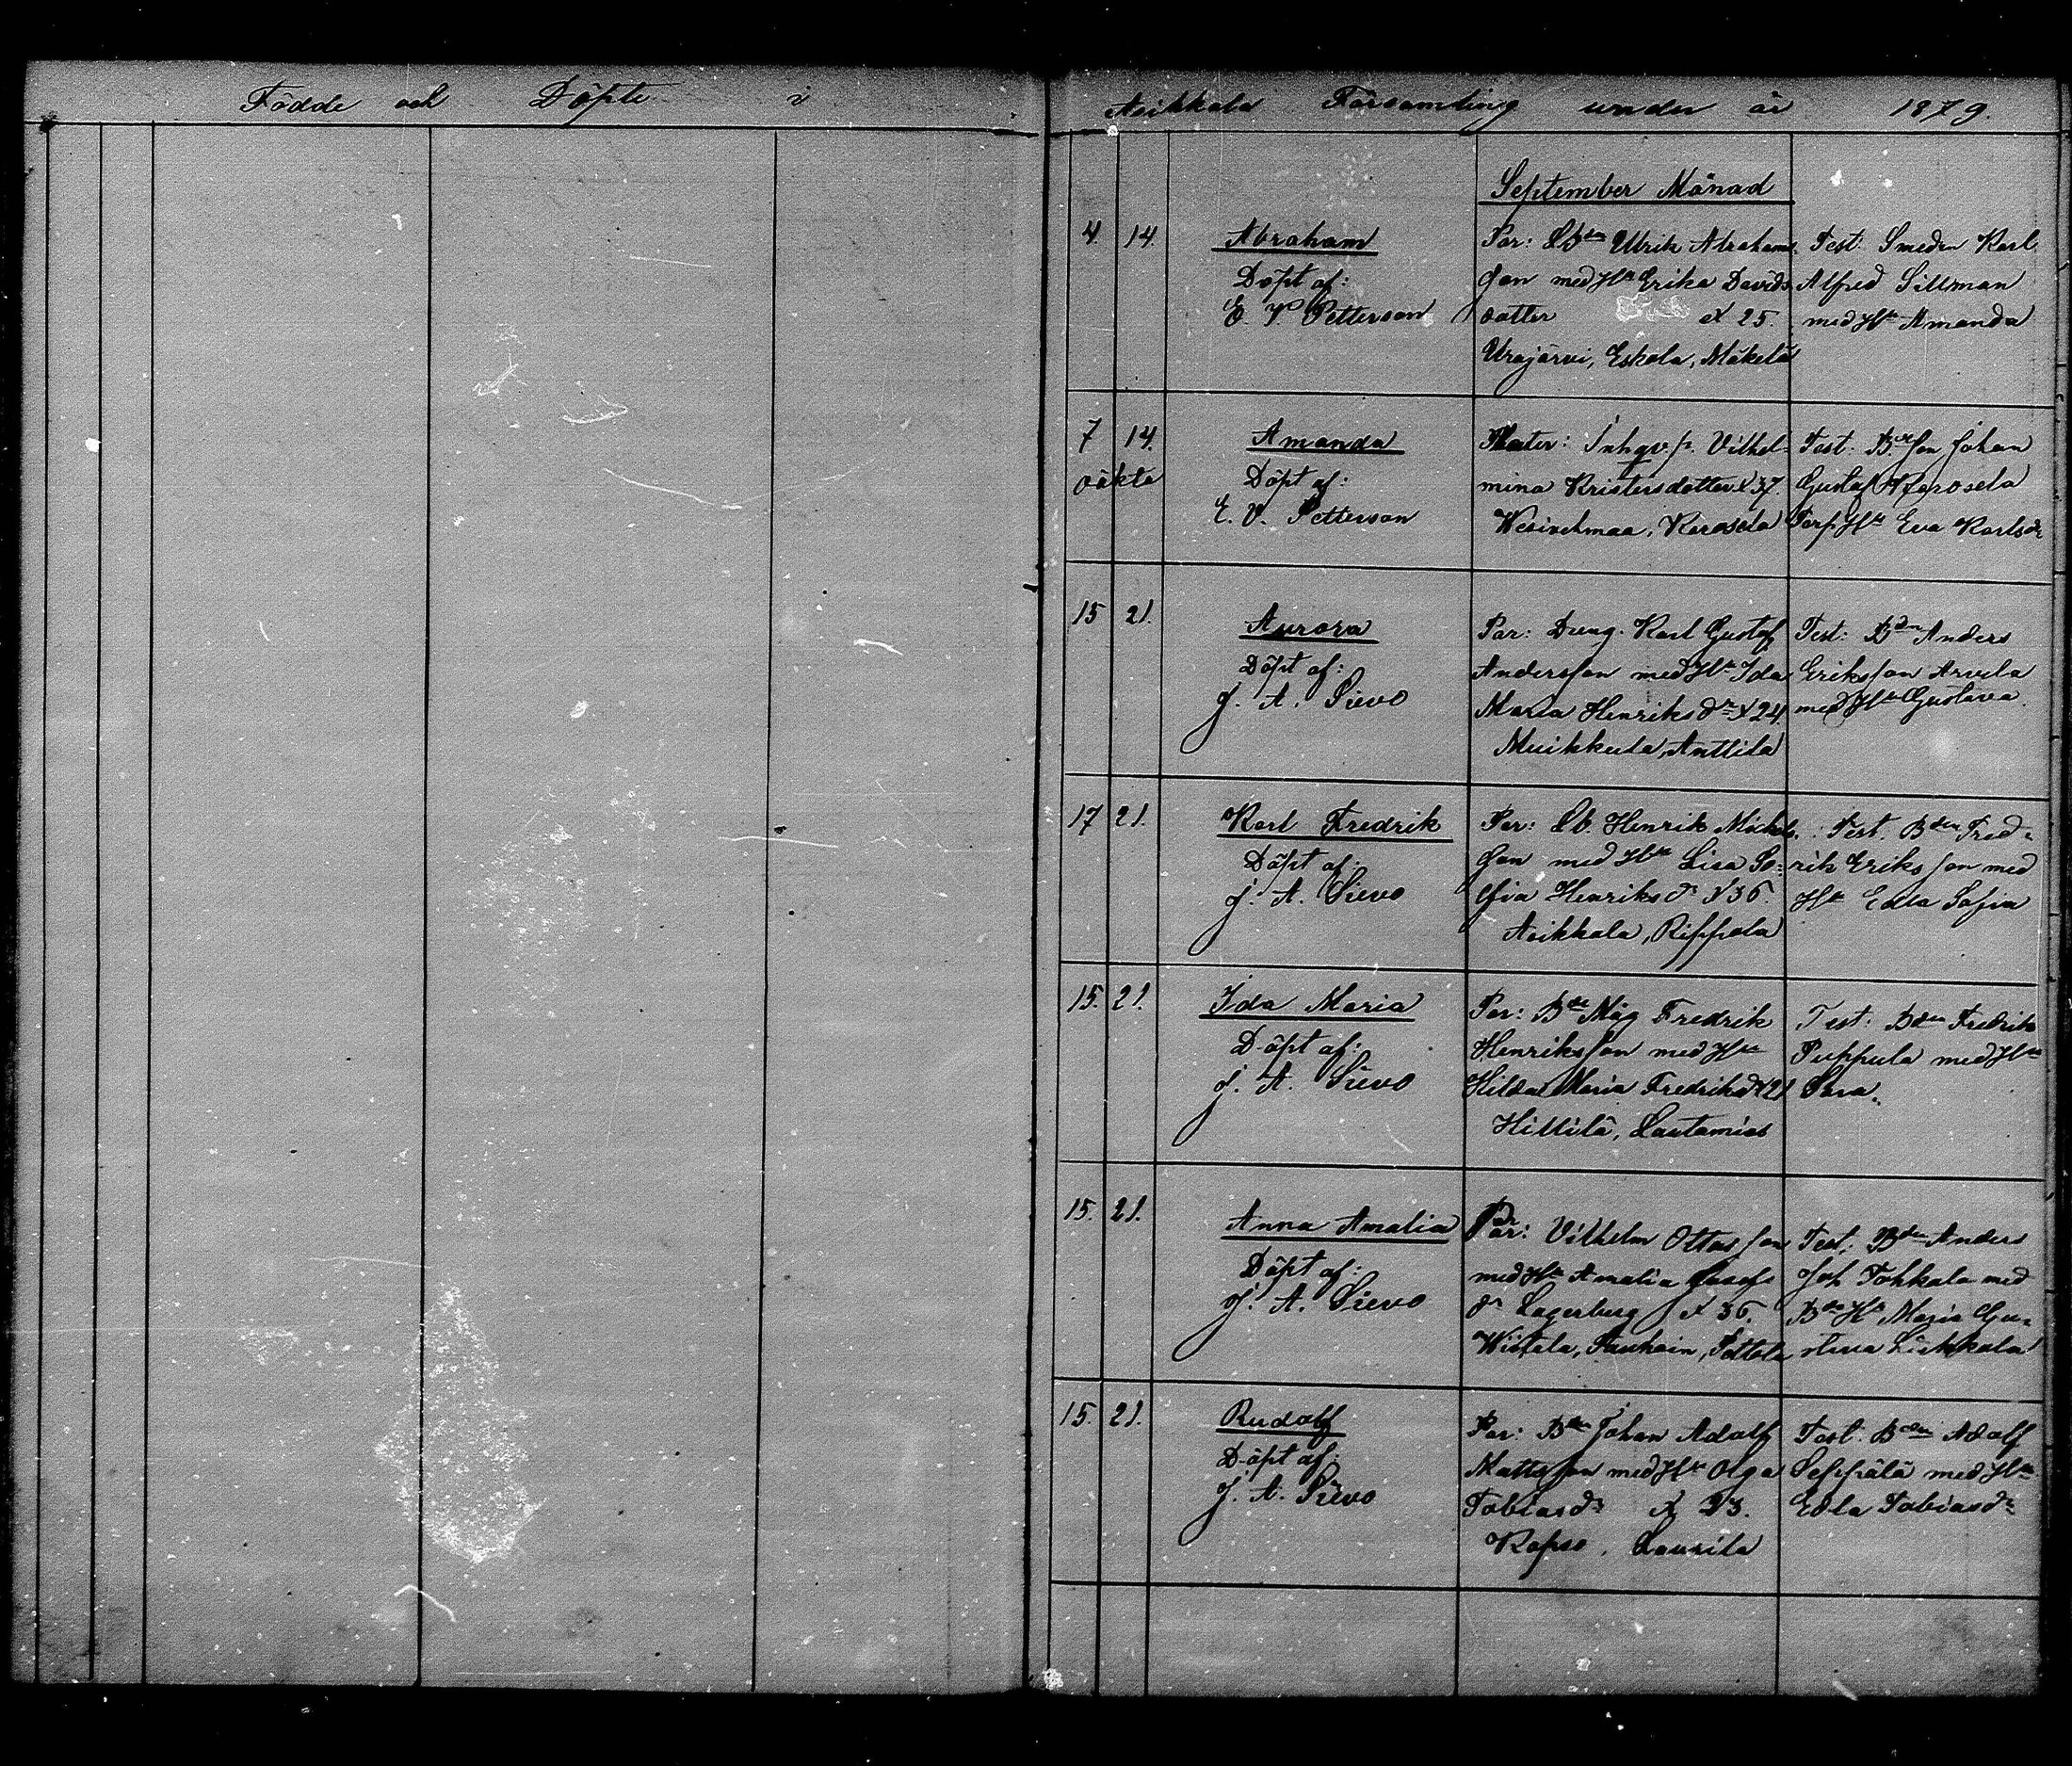 Födde och Döpte i Asikkala Församling under år 1879.
September Månad
4. 14. Abraham
Döpt af:
E. V. Petterson
Par: Lbden Ulrik Abrahams
son med Hu Erika Davids
dotter x 25.
Urajärvi, Eskola, Mäkelä
Test: Smeden Karl
Alfred Sillman
med Hu Amanda
7 14. Amanda
oäkta
Döpt af:
E. V. Petterson
Mater: Inhqv.p. Vilhel-
mina Kristersdotter x 37.
Wesivehmaa, Karosela
Test: Bdeson Johan
Gustaf Karosela
Torp. Hu Eva Karlsdr
15 21. Aurora
Döpt af:
J. A. Sievo
Par: Dräng. Karl Gustaf
Andersson med Hu Ida
Maria Henriksdr x 24.
Muikkula, Anttila
Test: Bden Anders
Eriksson Arvela
med Hu Gustava
17 21. Karl Fredrik
Döpt af:
J. A. Sievo
Par: Lb. Henrik Mickels-
son med Hu Lisa So-
fia Henriksdr x 36.
Asikkala, Rippala
Test. Bden Fred-
rik Eriksson med
Hu Edla Sofia
15. 21. Ida Maria
Döpt af:
J. A. Sievo
Par: Bde Måg Fredrik
Henriksson med Hu
Hilda Maria Fredriksd x 21
Hillilä, Lautamies
Test: Bden Fredrik
Puppula med Hu
Sara.
15. 21. Anna Amalia
Döpt af:
J. A. Sievo
Par: Vilhelm Ottosson
med Hu Amalia Josefs
dr Lagerberg x 36.
Wistela, Pauhain, Sottola
Test: Bden Anders
Jos. Tokkola med
Bde Hu Maria Gu-
stava Liukkala
15. 21. Rudolf
Döpt af:
J. A. Sievo
Par: Bden Johan Adolf
Mattsson med Hu Olga
Tobiasdr x 23.
Kopso, Laurila
Test: Bden Adolf
Seppälä med Hu
Edla Tobiasdr